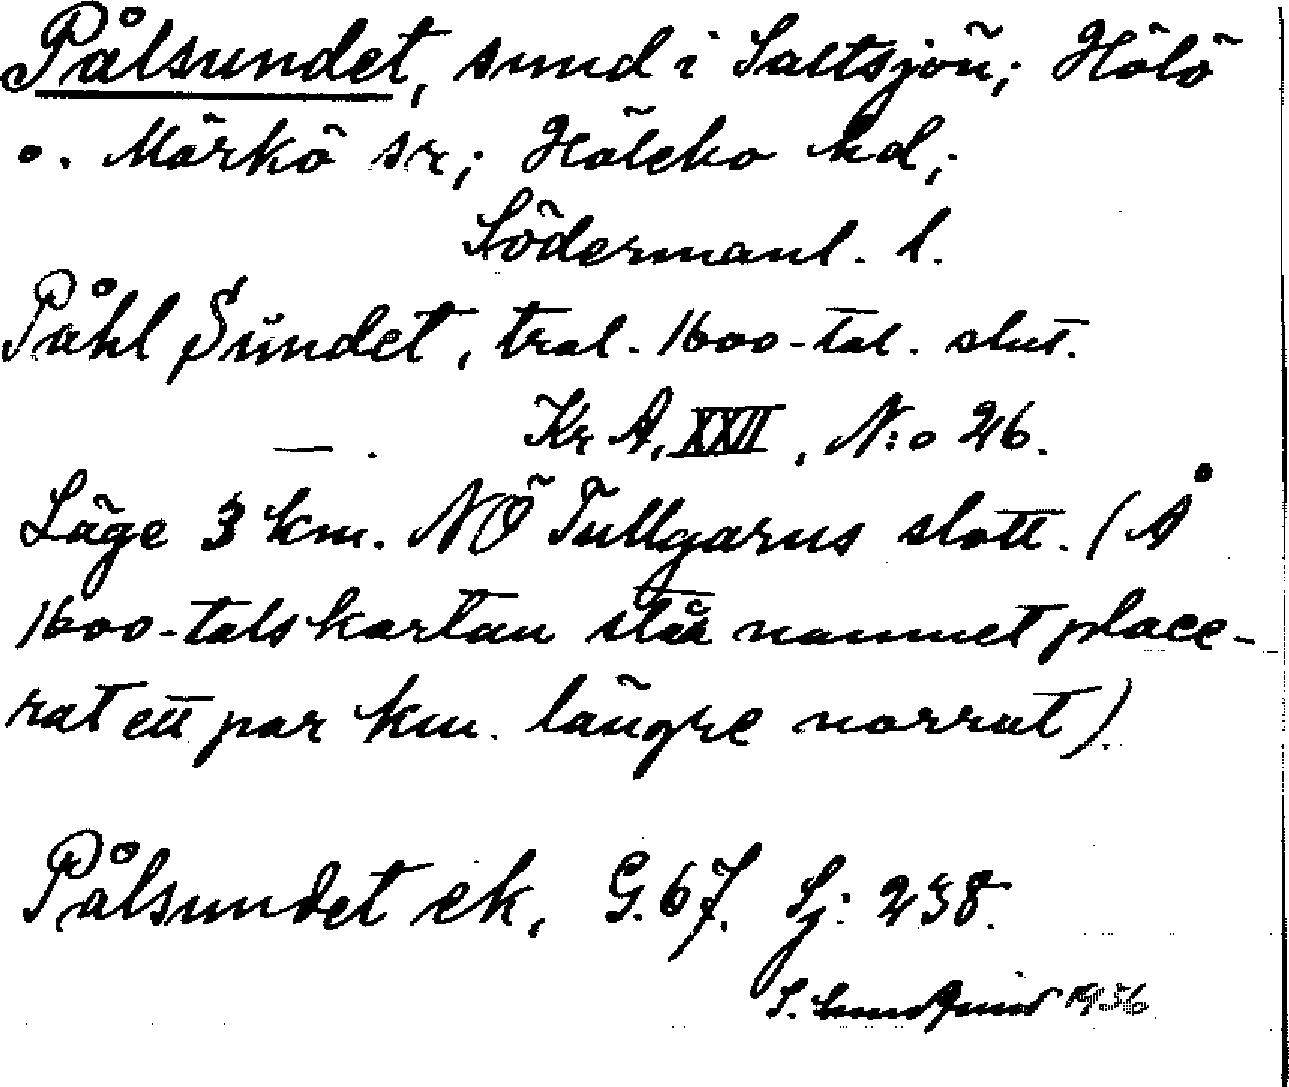 Pålsundet, sund i Saltsjön; Hölö
o. Mörkö sr; Hölebo hd;
Södermanl. l.
Påhl Sündet, tral. 1600-tal. slut.
—. Kr A, XXII, N:o 26.
Läge 3 km. NÖ Tullgarns slott. (Å
1600-talskartan står namnet place-
rat ett par km. längre norrut).
Pålsundet ek, G.67. Sj: 238.
S. Lundqvist 1956